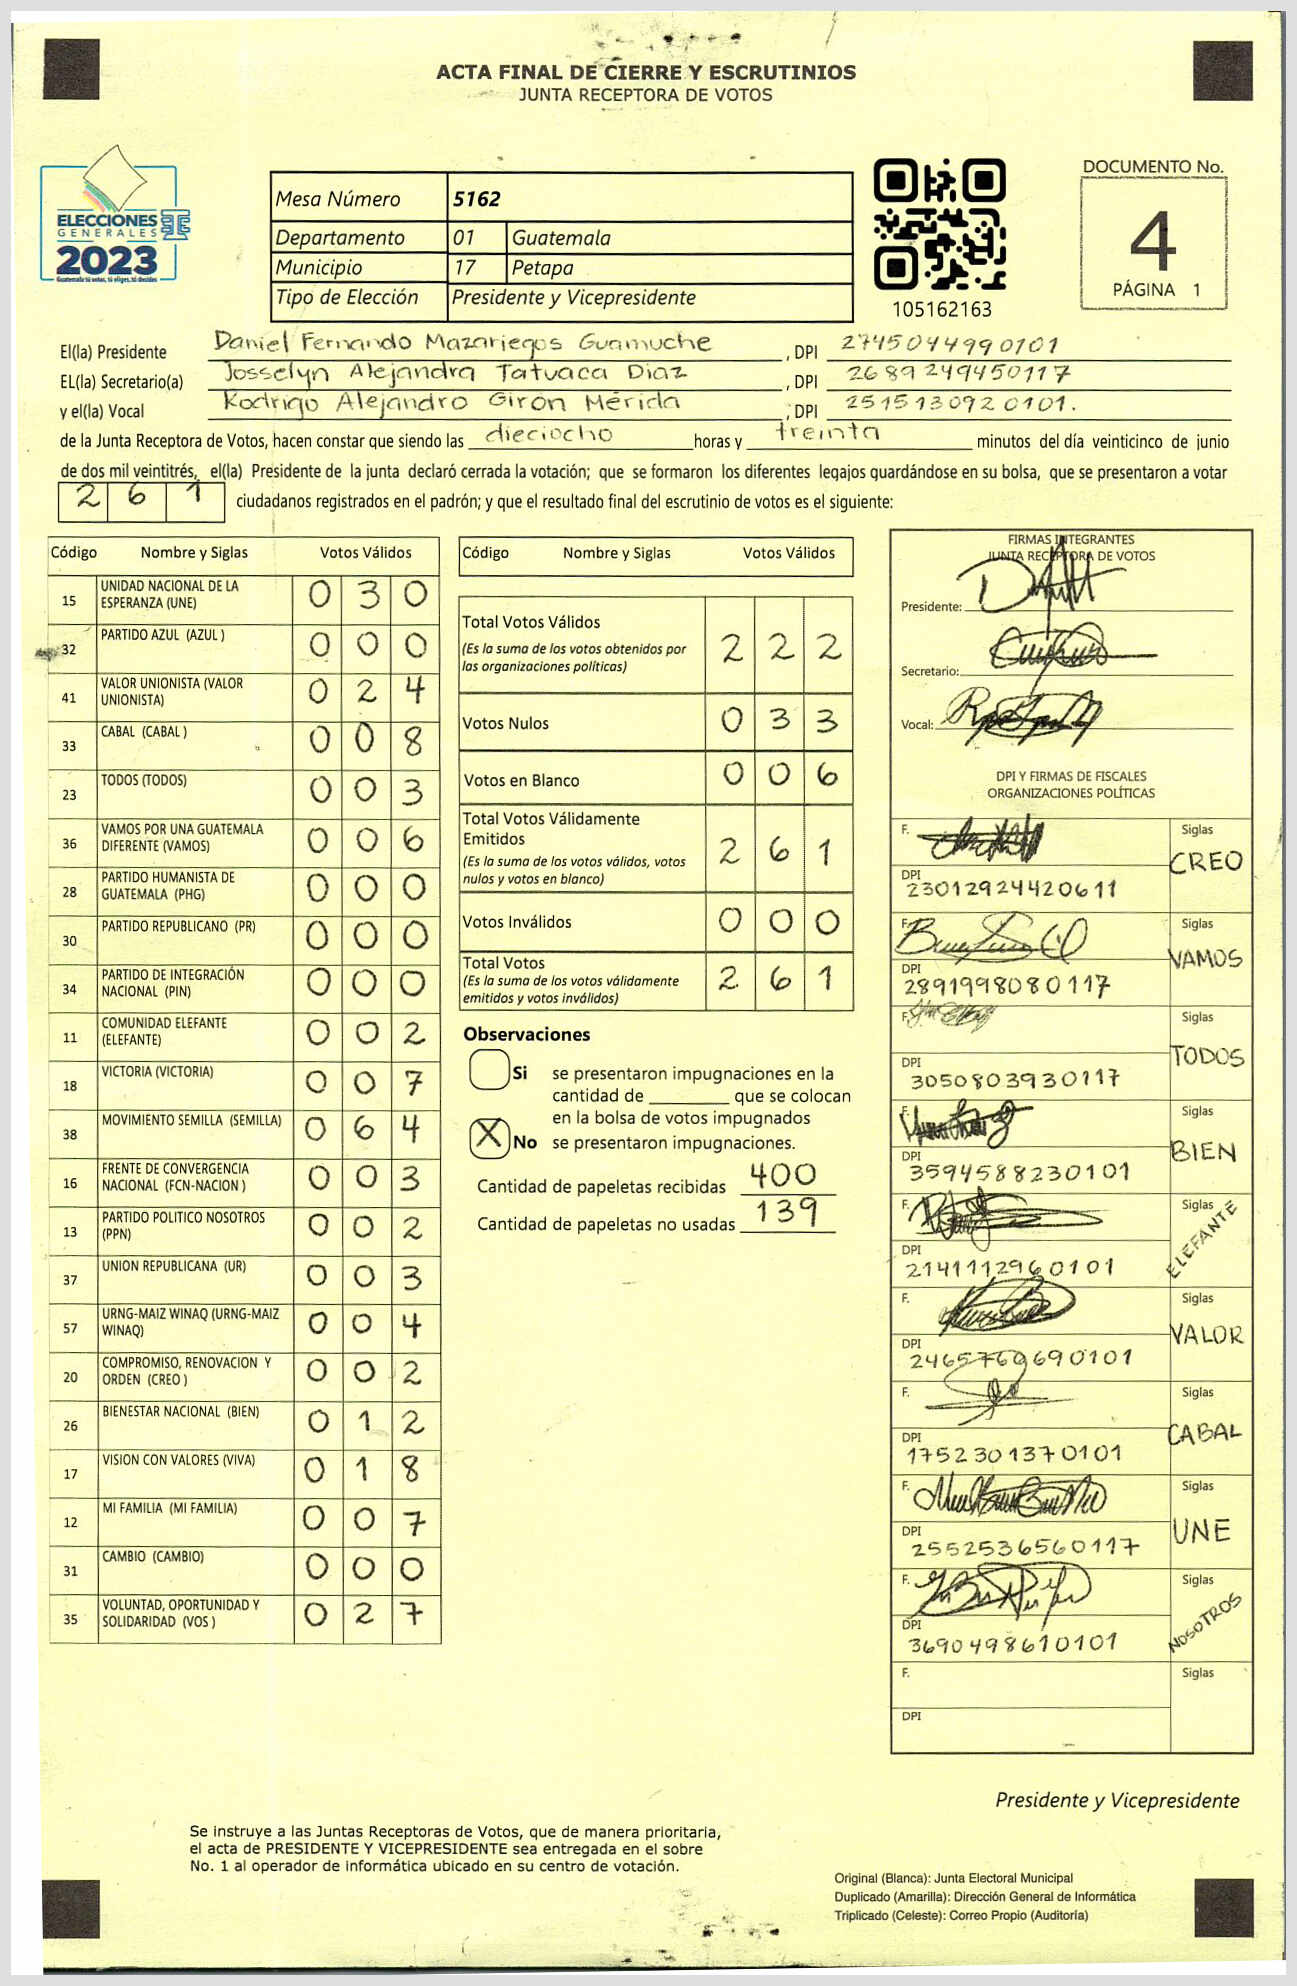 ACTA FINAL DE CIERRE Y ESCRUTINIOS
JUNTA RECEPTORA DE VOTOS
ELECCIONES
GENERALES
2023
Guatemala tú votas, tú eliges, tú decides
Mesa Número 5162
Departamento 01 Guatemala
Municipio 17 Petapa
Tipo de Elección Presidente y Vicepresidente
105162163
DOCUMENTO No.
4
PÁGINA 1
El(la) Presidente Daniel Fernando Mazariegos Guamuche, DPI 2745044990101
EL(la) Secretario(a) Josselyn Alejandra Tatuaca Diaz, DPI 2689249450117
y el(la) Vocal Rodrigo Alejandro Girón Mérida, DPI 2515130920101.
de la Junta Receptora de Votos, hacen constar que siendo las dieciocho horas y treinta minutos del día veinticinco de junio
de dos mil veintitrés, el(la) Presidente de la junta declaró cerrada la votación; que se formaron los diferentes legajos guardándose en su bolsa, que se presentaron a votar
2 6 1 ciudadanos registrados en el padrón; y que el resultado final del escrutinio de votos es el siguiente:
Código Nombre y Siglas Votos Válidos
15 UNIDAD NACIONAL DE LA ESPERANZA (UNE) 0 3 0
32 PARTIDO AZUL (AZUL ) 0 0 0
41 VALOR UNIONISTA (VALOR UNIONISTA) 0 2 4
33 CABAL (CABAL ) 0 0 8
23 TODOS (TODOS) 0 0 3
36 VAMOS POR UNA GUATEMALA DIFERENTE (VAMOS) 0 0 6
28 PARTIDO HUMANISTA DE GUATEMALA (PHG) 0 0 0
30 PARTIDO REPUBLICANO (PR) 0 0 0
34 PARTIDO DE INTEGRACIÓN NACIONAL (PIN) 0 0 0
11 COMUNIDAD ELEFANTE (ELEFANTE) 0 0 2
18 VICTORIA (VICTORIA) 0 0 7
38 MOVIMIENTO SEMILLA (SEMILLA) 0 6 4
16 FRENTE DE CONVERGENCIA NACIONAL (FCN-NACION ) 0 0 3
13 PARTIDO POLITICO NOSOTROS (PPN) 0 0 2
37 UNION REPUBLICANA (UR) 0 0 3
57 URNG-MAIZ WINAQ (URNG-MAIZ WINAQ) 0 0 4
20 COMPROMISO, RENOVACION Y ORDEN (CREO ) 0 0 2
26 BIENESTAR NACIONAL (BIEN) 0 1 2
17 VISION CON VALORES (VIVA) 0 1 8
12 MI FAMILIA (MI FAMILIA) 0 0 7
31 CAMBIO (CAMBIO) 0 0 0
35 VOLUNTAD, OPORTUNIDAD Y SOLIDARIDAD (VOS ) 0 2 7
Código Nombre y Siglas Votos Válidos
Total Votos Válidos 2 2 2
(Es la suma de los votos obtenidos por
las organizaciones políticas)
Votos Nulos 0 3 3
Votos en Blanco 0 0 6
Total Votos Válidamente
Emitidos 2 6 1
(Es la suma de los votos válidos, votos
nulos y votos en blanco)
Votos Inválidos 0 0 0
Total Votos 2 6 1
(Es la suma de los votos válidamente
emitidos y votos inválidos)
Observaciones
Si se presentaron impugnaciones en la
cantidad de ________ que se colocan
en la bolsa de votos impugnados
X No se presentaron impugnaciones.
Cantidad de papeletas recibidas 400
Cantidad de papeletas no usadas 139
FIRMAS INTEGRANTES
JUNTA RECEPTORA DE VOTOS
Presidente:
Secretario:
Vocal:
DPI Y FIRMAS DE FISCALES
ORGANIZACIONES POLÍTICAS
F. Siglas CREO
DPI 23012924420611
F. Siglas VAMOS
DPI 2891998080117
F. Siglas TODOS
DPI 3050803930117
F. Siglas BIEN
DPI 3594588230101
F. Siglas ELEFANTE
DPI 2141112960101
F. Siglas VALOR
DPI 2465760690101
F. Siglas CABAL
DPI 1752301370101
F. Siglas UNE
DPI 2552536560117
F. Siglas NOSOTROS
DPI 3690498610101
F. Siglas
DPI
Presidente y Vicepresidente
Se instruye a las Juntas Receptoras de Votos, que de manera prioritaria,
el acta de PRESIDENTE Y VICEPRESIDENTE sea entregada en el sobre
No. 1 al operador de informática ubicado en su centro de votación.
Original (Blanca): Junta Electoral Municipal
Duplicado (Amarilla): Dirección General de Informática
Triplicado (Celeste): Correo Propio (Auditoría)